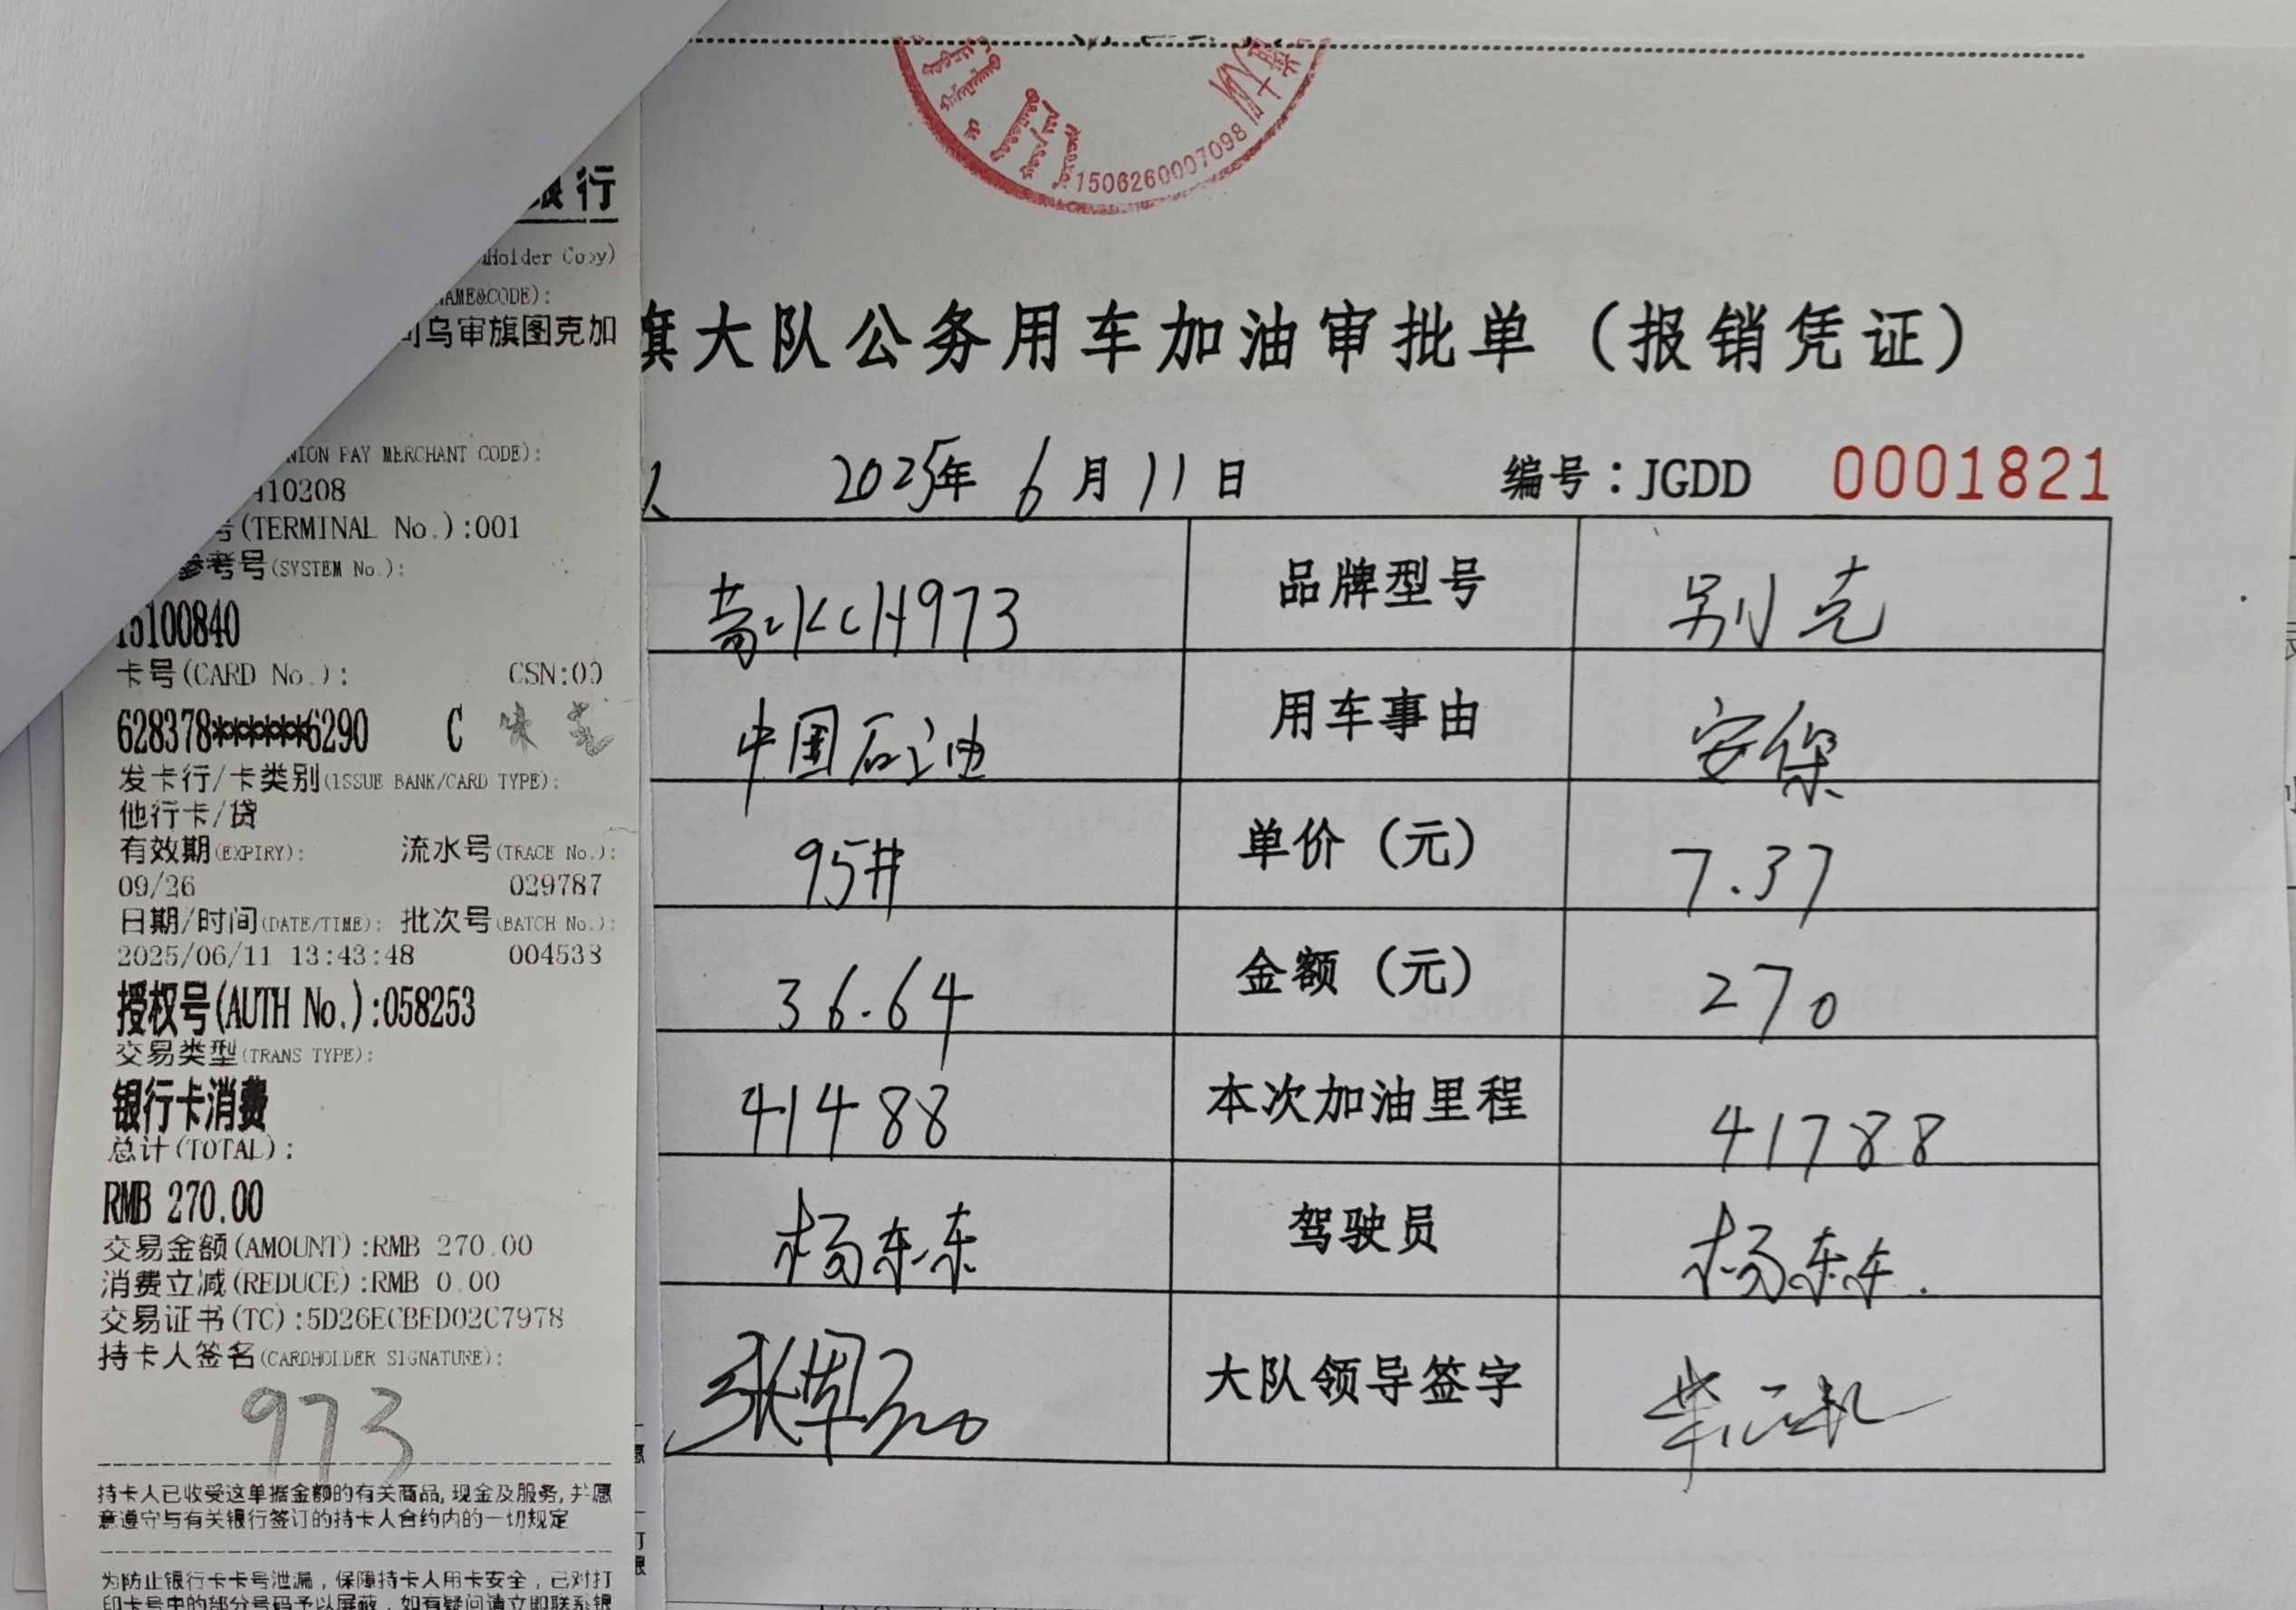 行
Holder Copy)
NAME&CODE):
司乌审旗图克加
NION PAY MERCHANT CODE):
410208
号(TERMINAL No.):001
参考号(SYSTEM No.):
15100840
卡号(CARD No.): CSN:00
628378******6290 C
发卡行/卡类别(ISSUE BANK/CARD TYPE):
他行卡/贷
有效期(EXPIRY): 流水号(TRACE No.):
09/26 029787
日期/时间(DATE/TIME): 批次号(BATCH No.):
2025/06/11 13:43:48 004533
授权号(AUTH No.):058253
交易类型(TRANS TYPE):
银行卡消费
总计(TOTAL):
RMB 270.00
交易金额(AMOUNT):RMB 270.00
消费立减(REDUCE):RMB 0.00
交易证书(TC):5D26ECBED02C7978
持卡人签名(CARDHOLDER SIGNATURE):
973
持卡人已收受这单据金额的有关商品,现金及服务,并愿
意遵守与有关银行签订的持卡人合约内的一切规定
为防止银行卡卡号泄漏,保障持卡人用卡安全,已对打
印卡号中的部分号码予以屏蔽,如有疑问请立即联系银
1506260007098
旗大队公务用车加油审批单(报销凭证)
2025年 6月11日 编号:JGDD 0001821
KCH973 品牌型号 别克
中国石油 用车事由 安保
95# 单价(元) 7.37
36.64 金额(元) 270
41488 本次加油里程 41788
杨东东 驾驶员 杨东东
大队领导签字